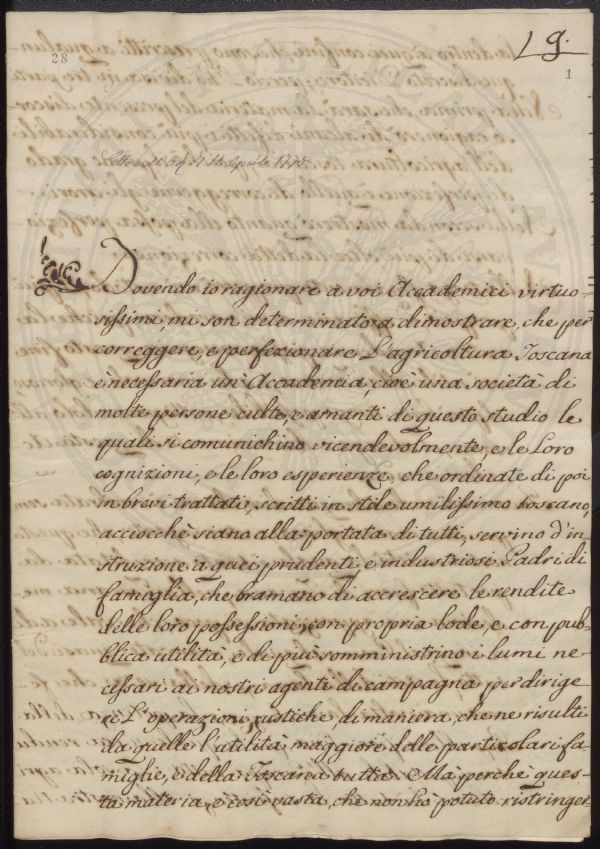 19.
28
1
Dovendo io ragionare a voi Accademici virtuo-
sissimi, mi son determinato a dimostrare, che per
correggere, e perfezionare L'agricoltura Toscana
è necessaria un'Accademia, cioè una società di
molte persone culte, e amanti di questo studio le
quali si comunichino vicendevolmente, e le Loro
cognizioni, e le loro esperienze, che ordinate di poi
in brevi trattati, scritti in stile umilissimo toscano,
acciocchè siano alla portata di tutti, servino d'in-
struzione a quei prudenti, e industriosi Padri di
famiglia, che bramano di accrescere le rendite
delle loro possessioni, con propria lode, e con pub-
blica utilità, e di più somministrino i lumi ne-
cessari ai nostri agenti di campagna per dirige-
re L'operazioni rustiche, di maniera, che ne risulti
da quelle l'utilità maggiore delle particolari fa-
miglie, e della Toscana tutta. Mà perchè ques-
ta materia, e così vasta, che non hò potuto ristringer-